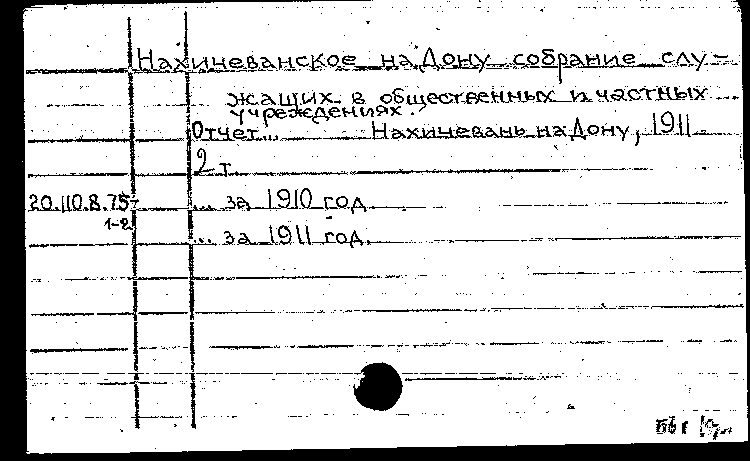 Нахичеванское на Дону собрание слу-
жащих в общественных и частных
учреждениях.
Отчет... Нахичевань на Дону, 1911.
2 т.
20.110.8.75 ... за 1910 год.
1-2
... за 1911 год.